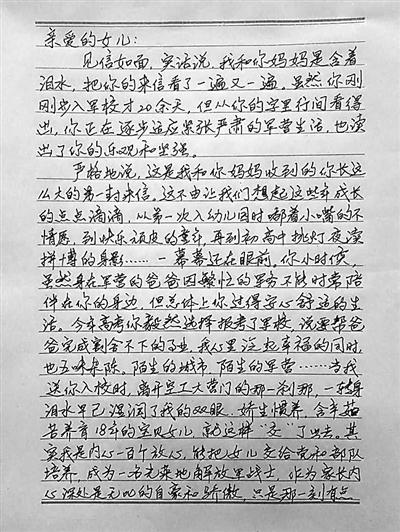 亲爱的女儿：
见信如面，实话说，我和你妈妈是含着
泪水，把你的来信看了一遍又一遍。虽然你刚
刚步入军校才20余天，但从你的字里行间看得
出，你正在逐步适应紧张严肃的军营生活，也读
出了你的乐观和坚强。
严格地说，这是我和你妈妈收到的你长这
么大的第一封来信。这不由让我们想起这些年成长
的点点滴滴，从第一次入幼儿园时嘟着小嘴的不
情愿，到快乐顽皮的童年，再到初高中挑灯夜读
拼搏的身影……一幕幕还在眼前，你小时候，
虽然身在军营的爸爸因繁忙的军务不能时常陪
伴在你的身边，但总体上你过得安心舒适的生
活。今年高考你毅然选择报考了军校，说要帮爸
爸完成割舍不下的事业，我心里泛起幸福的同时，
也五味杂陈，陌生的城市、陌生的军营……当我
送你入校时，离开空工大营门的那一刹那，一转身
泪水早已湿润了我的双眼。娇生惯养、含辛茹
苦养育18年的宝贝女儿，就这样“交”了出去。其
实我是内心一百个放心，能把女儿交给党和部队
培养，成为一名光荣地解放军战士，作为家长内
心深处是无比的自豪和骄傲，只是那一刻有点